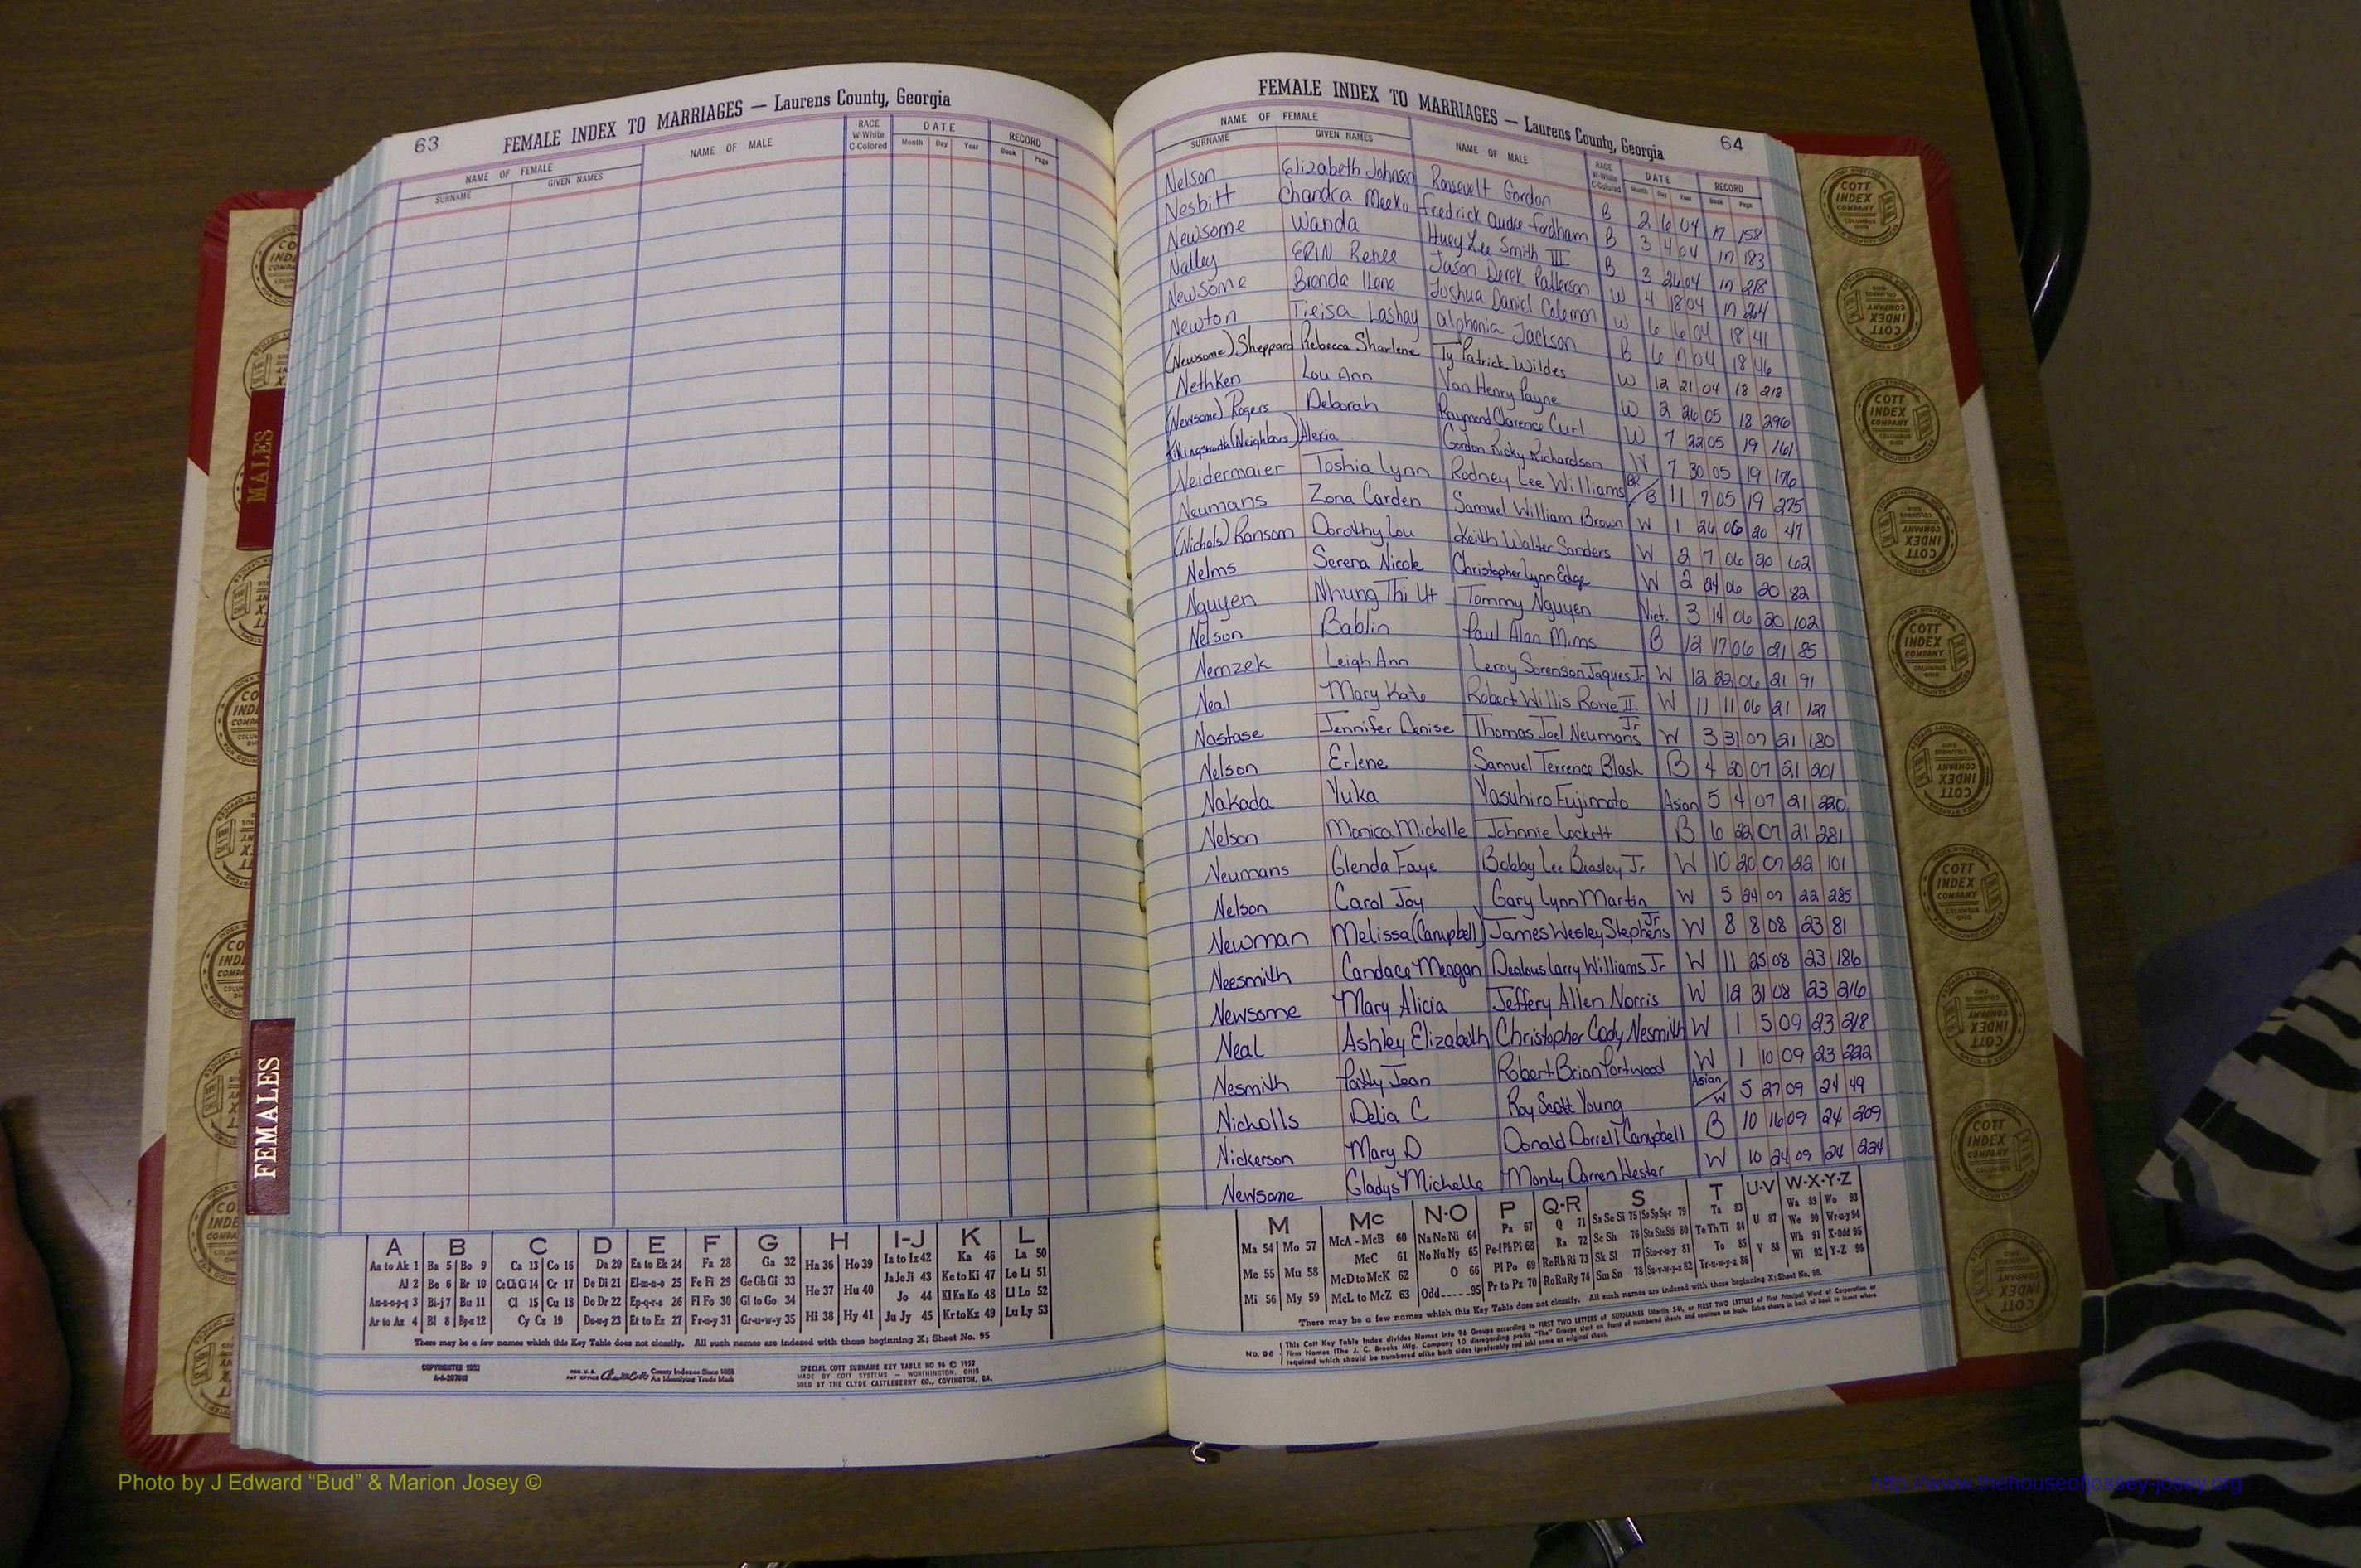 63
FEMALE INDEX TO MARRIAGES — Laurens County, Georgia
NAME OF FEMALE
SURNAME GIVEN NAMES
NAME OF MALE
RACE W-White C-Colored
DATE
Month Day Year
RECORD
Book Page
FEMALE INDEX TO MARRIAGES — Laurens County, Georgia
64
NAME OF FEMALE
SURNAME GIVEN NAMES
NAME OF MALE
RACE W-White C-Colored
DATE
Month Day Year
RECORD
Book Page
Nelson Elizabeth Johnson Roosevelt Gordon B 2 6 04 17 158
Nesbitt Chandra Meeku Fredrick Andre Fordham B 3 4 04 17 183
Newsome Wanda Huey Lee Smith III B 3 26 04 17 218
Nalley ERIN Renee Jason Derek Patterson W 4 18 04 17 264
Newsome Brenda Ilene Joshua Daniel Coleman W 6 6 04 18 41
Newton Tieisa Lashay Alphonia Jackson B 6 7 04 18 46
(Newsome) Sheppard Rebecca Sharlene Ty Patrick Wildes W 12 21 04 18 218
Nethken Lou Ann Van Henry Payne W 2 26 05 18 296
(Newsome) Rogers Deborah Raymond Clarence Curl W 7 22 05 19 161
Killingsworth (Neighbors) Alexia Gordon Ricky Richardson W 7 30 05 19 176
Neidermaier Toshia Lynn Rodney Lee Williams B 11 7 05 19 275
Neumans Zona Carden Samuel William Brown W 1 26 06 20 47
(Nichols) Ransom Dorothy Lou Keith Walter Sanders W 2 7 06 20 62
Nelms Serena Nicole Christopher Lynn Edge W 2 24 06 20 82
Nguyen Nhung Thi Ut Tommy Nguyen Viet. 3 14 06 20 102
Nelson Bablin Paul Alan Mims B 12 17 06 21 85
Nemzek Leigh Ann Leroy Sorenson Jaques Jr W 12 22 06 21 91
Neal Mary Kate Robert Willis Rowe II W 11 11 06 21 127
Nastase Jennifer Denise Thomas Joel Neumans Jr W 3 31 07 21 180
Nelson Erlene Samuel Terrence Blash B 4 20 07 21 201
Nakada Yuka Yasuhiro Fujimoto Asian 5 4 07 21 220
Nelson Monica Michelle Johnnie Lockett B 6 22 07 21 281
Neumans Glenda Faye Bobby Lee Beasley Jr W 10 20 07 22 101
Nelson Carol Joy Gary Lynn Martin W 5 24 07 22 285
Newman Melissa (Campbell) James Wesley Stephens Jr W 8 8 08 23 81
Neesmith Candace Meagan Dealous Larry Williams Jr W 11 25 08 23 186
Newsome Mary Alicia Jeffery Allen Norris W 12 31 08 23 216
Neal Ashley Elizabeth Christopher Cody Nesmith W 1 5 09 23 218
Nesmith Patty Jean Robert Brian Portwood W 1 10 09 23 222
Nicholls Delia C Roy Scott Young Asian/W 5 27 09 24 49
Nickerson Mary D Donald Dorrell Campbell B 10 16 09 24 209
Newsome Gladys Michelle Monty Darren Hester W 10 24 09 24 224
MALES
FEMALES
A B C D E F G H I-J K L
Aa to Ak 1 Ba 5 Bo 9 Ca 13 Co 16 Da 20 Ea to Ek 24 Fa 28 Ga 32 Ha 36 Ho 39 Ia to Iz 42 Ka 46 La 50
Al 2 Be 6 Br 10 Ce Ch Ci 14 Cr 17 De Di 21 El-m-n-o 25 Fe Fi 29 Ge Gh Gi 33 He 37 Hu 40 Ja Je Ji 43 Ke to Ki 47 Le Li 51
Am-n-o-p-q 3 Bi-j 7 Bu 11 Cl 15 Cu 18 Do Dr 22 Ep-q-r-s 26 Fl Fo 30 Gl to Go 34 Jo 44 Kl Kn Ko 48 Ll Lo 52
Ar to Az 4 Bl 8 By-z 12 Cy Cz 19 Du-w-y 23 Et to Ez 27 Fr-u-y 31 Gr-u-w-y 35 Hi 38 Hy 41 Ju Jy 45 Kr to Kz 49 Lu Ly 53
There may be a few names which this Key Table does not classify. All such names are indexed with those beginning X; Sheet No. 95
COPYRIGHTED 1952
REG. U.S. PAT OFFICE County Indexes Since 1888 An Identifying Trade Mark
SPECIAL COTT SURNAME KEY TABLE NO 96 © 1952
MADE BY COTT SYSTEMS — WORTHINGTON, OHIO
SOLD BY THE CLYDE CASTLEBERRY CO., COVINGTON, GA.
M Mc N-O P Q-R S T U-V W-X-Y-Z
Ma 54 Mo 57 McA - McB 60 Na Ne Ni 64 Pa 67 Q 71 Sa Se Si 75 So Sp Sq-r 79 Ta 83 U 87 Wa 89 Wo 93
Me 55 Mu 58 McC 61 No Nu Ny 65 Pe-f Ph Pi 68 Ra 72 Sc Sh 76 Sta Ste Sti 80 Te Th Ti 84 We 90 Wr-u-y 94
McD to McK 62 O 66 Pl Po 69 Re Rh Ri 73 Sk Sl 77 Sto-r-u-y 81 To 85 V 88 Wh 91 X-Odd 95
Mi 56 My 59 McL to McZ 63 Odd 95 Pr to Pz 70 Ro Ru Ry 74 Sm Sn 78 Su-v-w-y-z 82 Tr-u-w-y-z 86 Wi 92 Y-Z 96
There may be a few names which this Key Table does not classify. All such names are indexed with those beginning X; Sheet No. 95.
No. 96 This Cott Key Table Index divides Names into 96 Groups according to FIRST TWO LETTERS of SURNAMES (Martin 54), or FIRST TWO LETTERS of First Principal Word of Corporation or
Firm Names (The J. C. Brooks Mfg. Company 10 disregarding prefix "The" Groups start on front of numbered sheets and continue on back. Extra sheets in back of book to insert where
required which should be numbered alike both sides (preferably red ink) same as original sheet.
COTT INDEX COMPANY COLUMBUS OHIO
INDEX SYSTEMS
FOR COUNTY OFFICES
Photo by J Edward “Bud” & Marion Josey ©
http://www.thehouseofjossey-josey.org